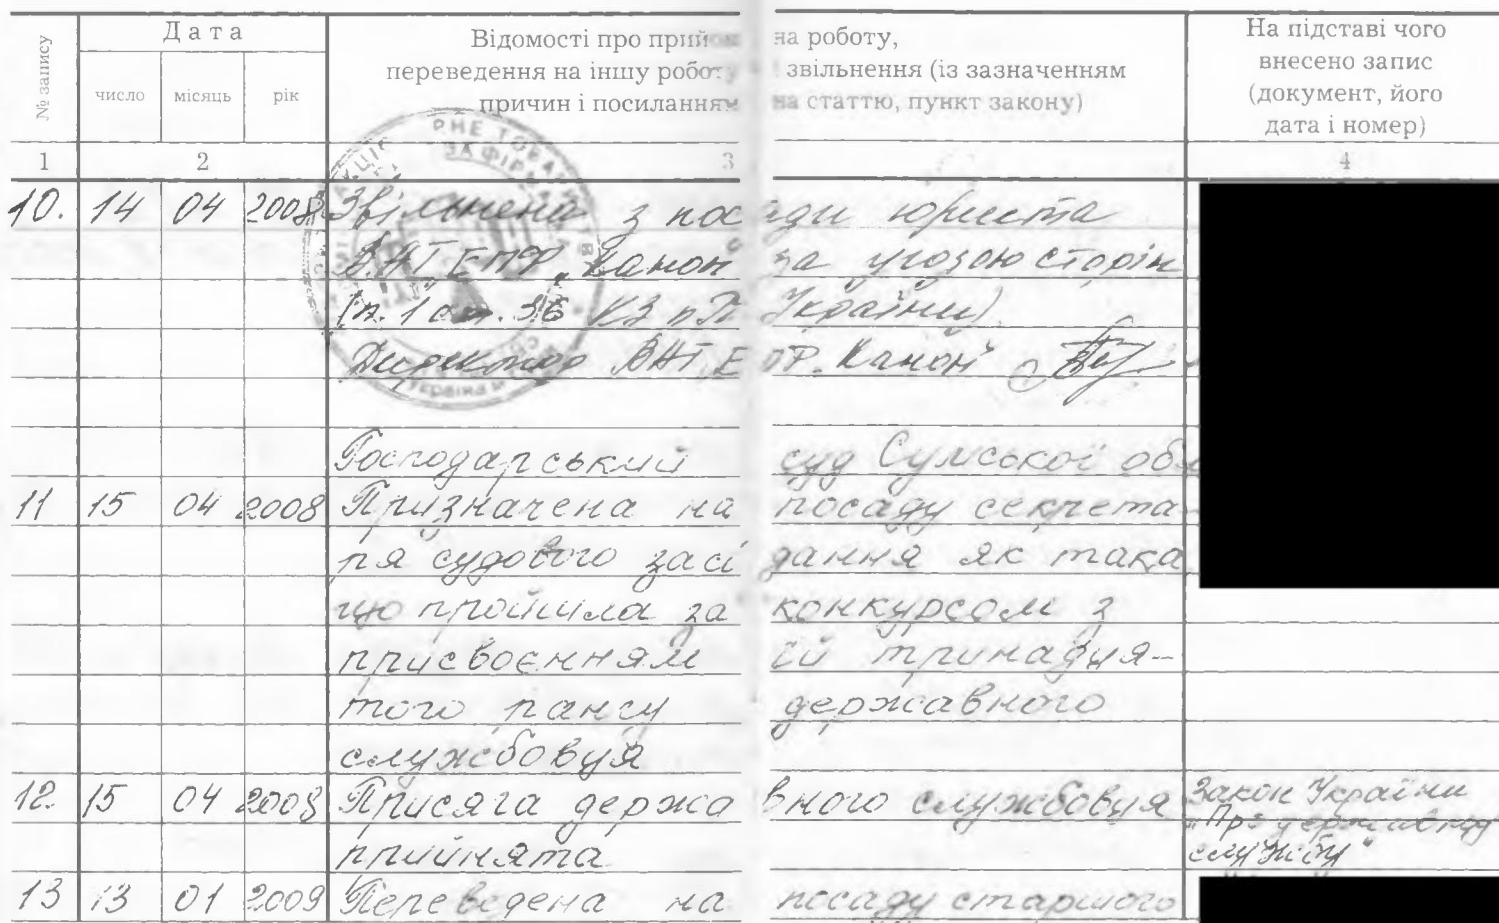 № запису
Дата
Відомості про прийом на роботу,
переведення на іншу роботу звільнення (із зазначенням
причин і посиланням на статтю, пункт закону)
На підставі чого
внесено запис
(документ, його
дата і номер)
число місяць рік
1 2 3 4
10. 14 04 2008 Звільнена з посади юриста
ВАТ ЕПФ „Канон" за угодою сторін
(п. 1 ст. 36 КЗпП України)
Директор ВАТ Канон"
Господарський суд Сумської обл
11 15 04 2008 Призначена на посаду секрета-
ря судового засідання як така
що пройшла за конкурсом з
присвоєнням їй тринадця-
того рангу державного
службовця
12. 15 04 2008 Присяга державного службовця Закон України
прийнята „Про державну
службу"
13 13 01 2009 Переведена на посаду старшого